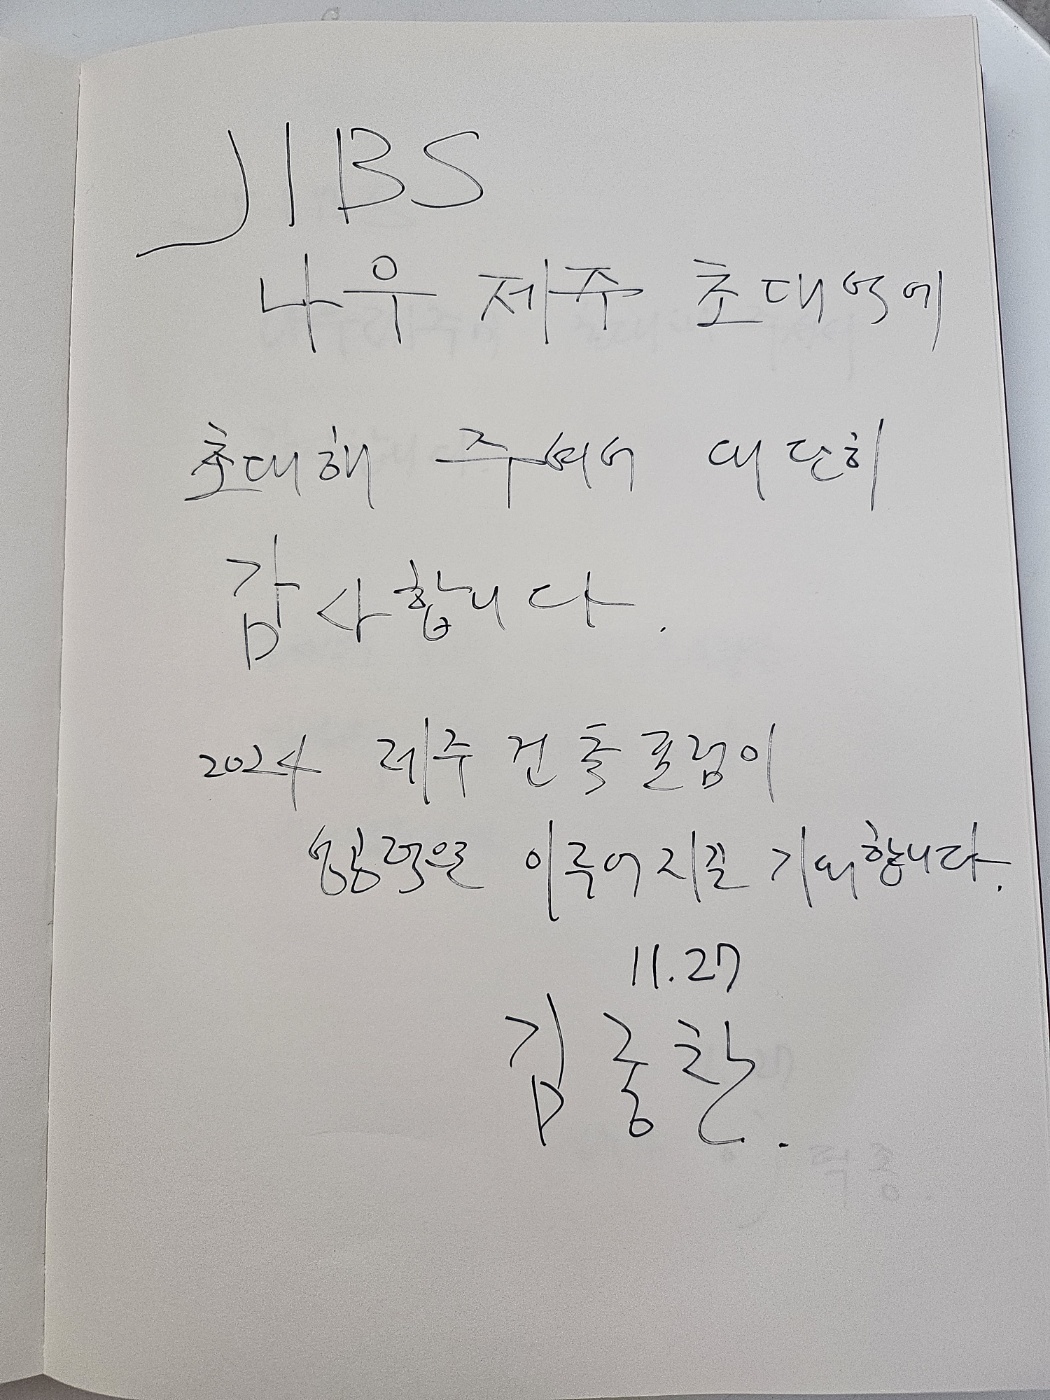 JIBS
나우 제주 초대석에
초대해 주셔서 대단히
감사합니다.
2024 제주 건축포럼이
성공적으로 이루어지길 기대합니다.
11.27
김중찬.